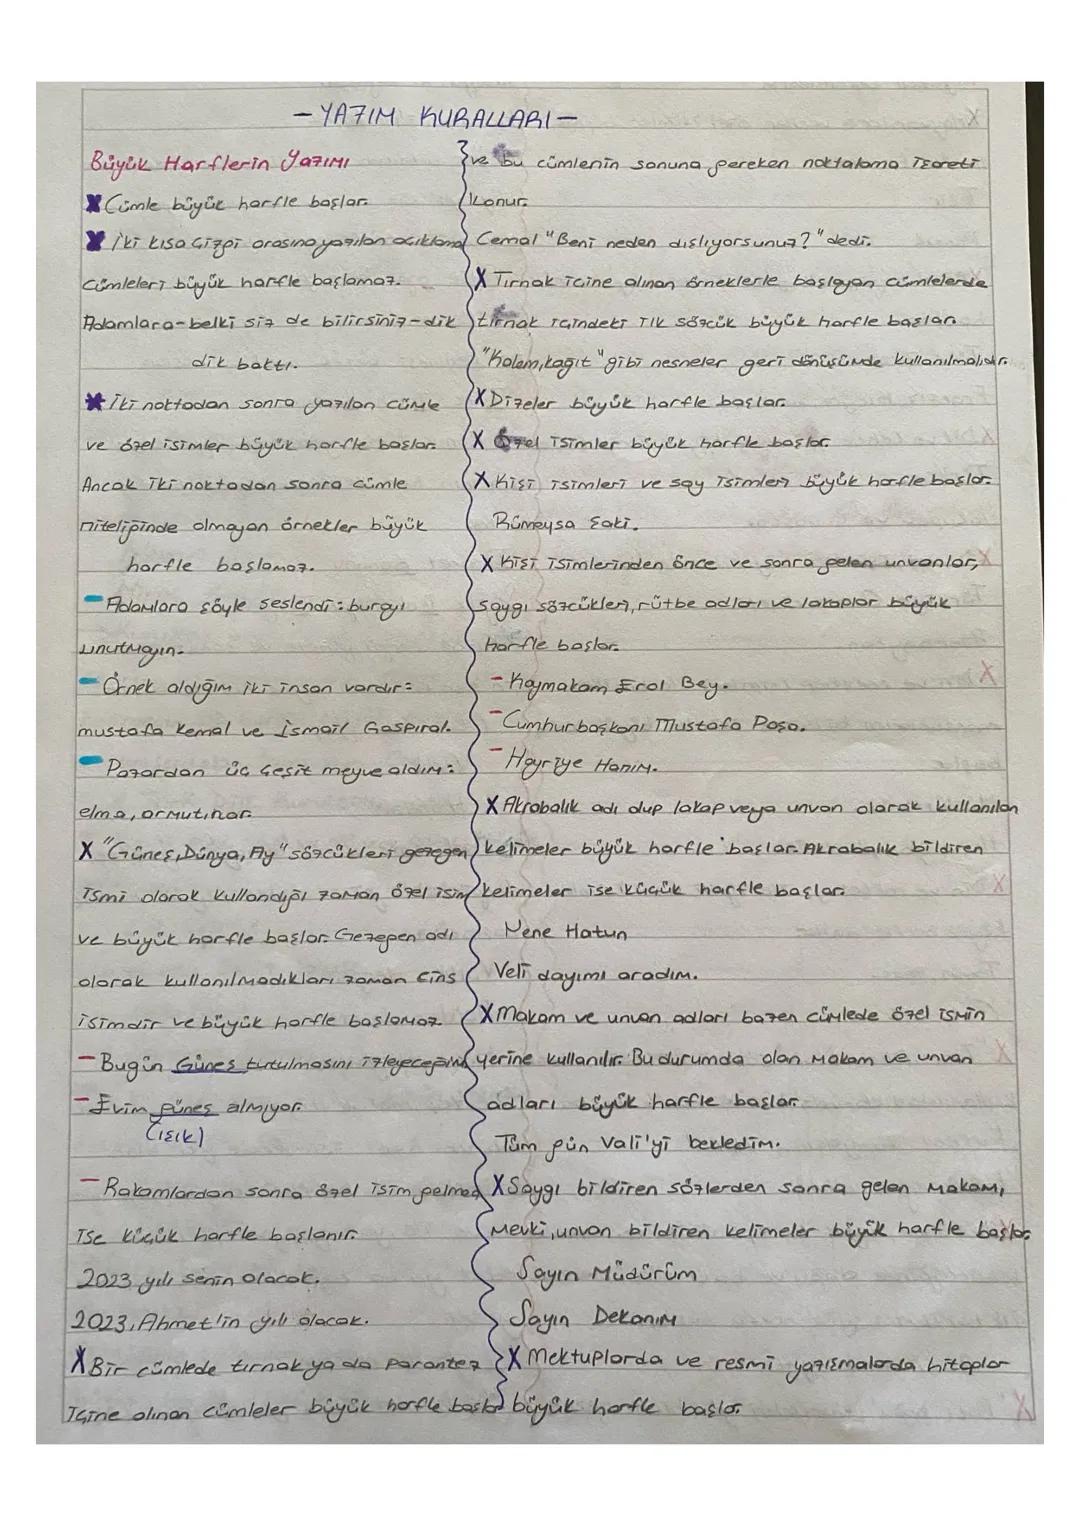 - YAZIM KURALLARI -
Büyük Harflerin Yazımı
X Cümle büyük harfle başlar.
X İki kısa çizgi arasına yazılan açıklama
cümleleri büyük harfle başlamaz.
Adamlara-belki siz de bilirsiniz-dik
dik baktı.
X İki noktadan sonra yazılan cümle
ve özel isimler büyük harfle başlar.
Ancak iki noktadan sonra cümle
niteliğinde olmayan örnekler büyük
harfle başlamaz.
- Adamlara şöyle seslendi: burgyı
unutmayın.
- Örnek aldığım iki insan vardır:
mustafa Kemal ve İsmail Gaspıral.
- Pazardan üç çeşit meyve aldım:
elma, armut, nar.
X "Güneş, Dünya, Ay" sözcükleri gezegen
ismi olarak kullandığı zaman özel isim
ve büyük harfle başlar. Gezegen adı
olarak kullanılmadıkları zaman cins
isimdir ve büyük harfle başlamaz.
- Bugün Güneş tutulmasını izleyeceğim
- Evim güneş almıyor.
(ışık)
- Rakamlardan sonra özel isim gelmez
ise küçük harfle başlanır.
2023 yılı senin olacak.
2023, Ahmet'in yılı olacak.
X Bir cümlede tırnak ya da parantez
içine alınan cümleler büyük harfle başlar
ve bu cümlenin sonuna gereken noktalama işareti
konur.
Cemal "Beni neden dışlıyorsunuz?" dedi.
X Tırnak içine alınan örneklerle başlayan cümlelerde
tırnak içindeki ilk sözcük büyük harfle başlar.
"Kalem, kağıt" gibi nesneler geri dönüşümde kullanılmalıdır.
X Dizeler büyük harfle başlar.
X Özel isimler büyük harfle başlar.
X Kişi isimleri ve soy isimleri büyük harfle başlar.
Rümeysa Eaki.
X Kişi isimlerinden önce ve sonra gelen unvanlar,
saygı sözcükleri, rütbe adları ve lakaplar büyük
harfle başlar.
- Kaymakam Erol Bey.
- Cumhurbaşkanı Mustafa Paşa.
- Hayriye Hanım.
X Akrabalık adı olup lakap veya unvan olarak kullanılan
kelimeler büyük harfle başlar. Akrabalık bildiren
kelimeler ise küçük harfle başlar.
Nene Hatun
Veli dayımı aradım.
X Makam ve unvan adları bazen cümlede özel ismin
yerine kullanılır. Bu durumda olan makam ve unvan
adları büyük harfle başlar.
Tüm gün Vali'yi bekledim.
X Saygı bildiren sözlerden sonra gelen makam,
mevki, unvan bildiren kelimeler büyük harfle başlar.
Sayın Müdürüm
Sayın Dekanım
X Mektuplarda ve resmi yazışmalarda hitaplar
büyük harfle başlar.